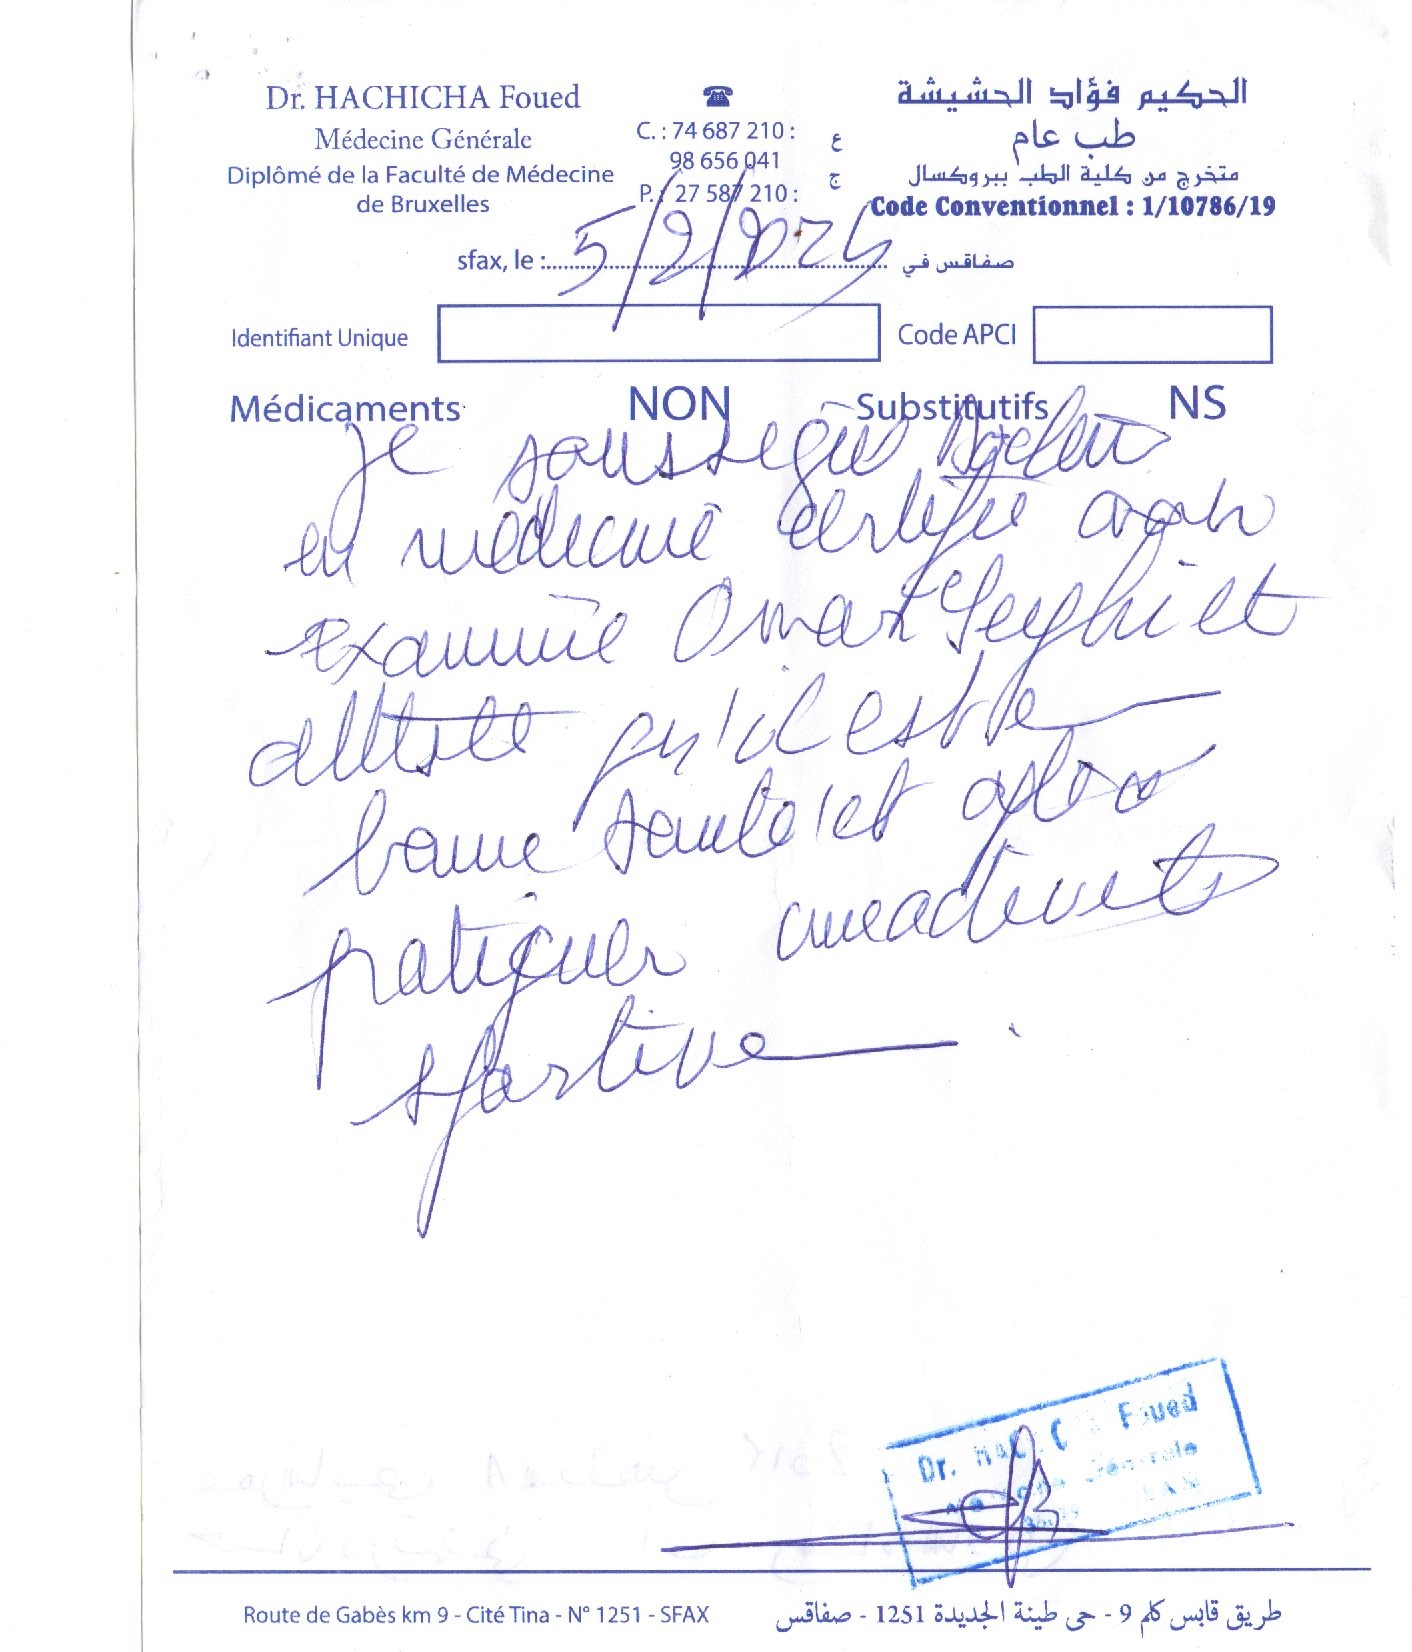 Dr. HACHICHA Foued
Médecine Générale
Diplômé de la Faculté de Médecine
de Bruxelles
C. : 74 687 210 : ع
98 656 041
P. / 27 587 210 : ج
الحكيم فؤاد الحشيشة
طب عام
متخرج من كلية الطب ببروكسال
Code Conventionnel : 1/10786/19
sfax, le : 5/2/2025 صفاقس في
Identifiant Unique Code APCI
Médicaments NON Substitutifs NS
Je soussigné Docteur
en médecine certifie avoir
examiné Omar et
atteste qu'il est de
bonne santé et apte a
pratiquer une activité
sportive
Dr. Foued
Générale
Route de Gabès km 9 - Cité Tina - N° 1251 - SFAX
طريق قابس كلم 9 - حي طينة الجديدة 1251 - صفاقس